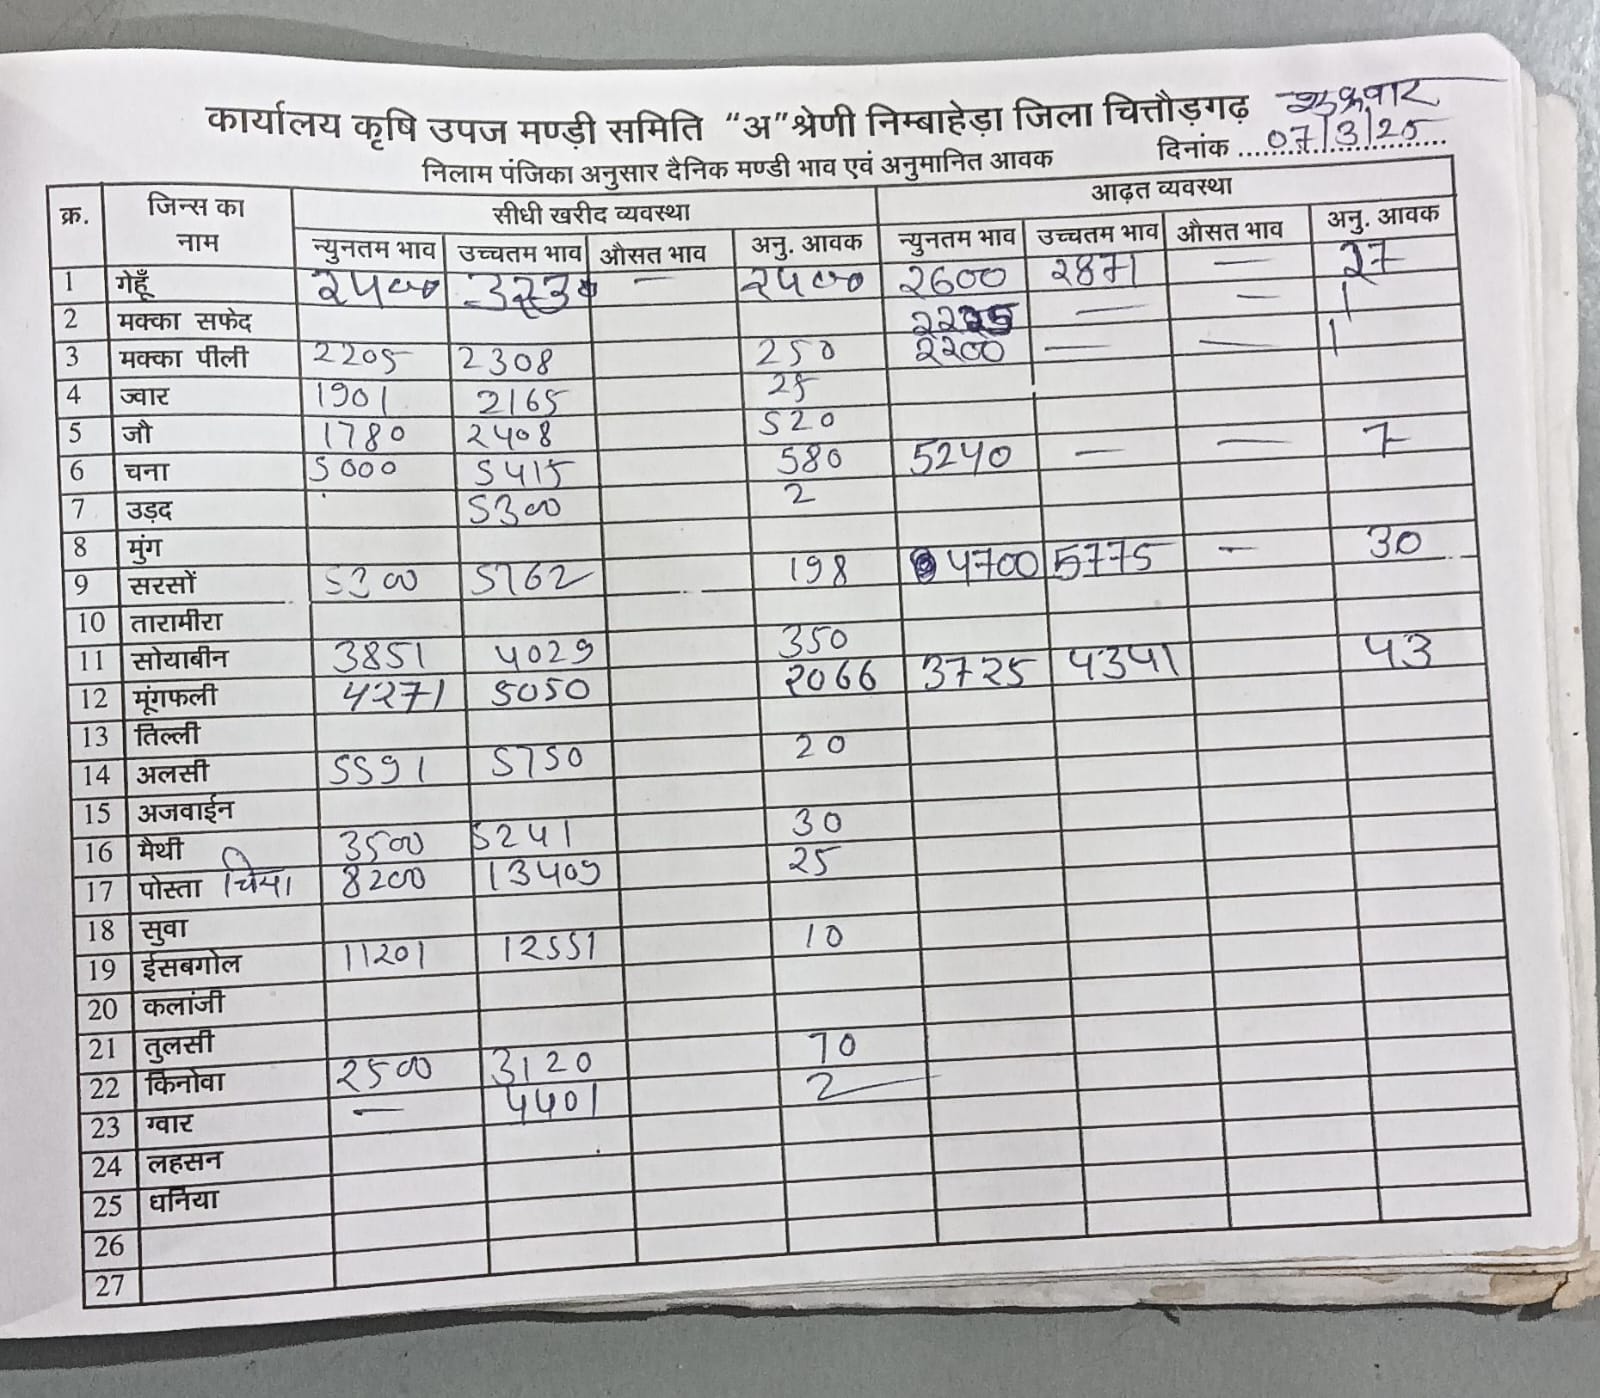 कार्यालय कृषि उपज मण्ड़ी समिति "अ" श्रेणी निम्बाहेड़ा जिला चित्तौड़गढ़ शुक्रवार
निलाम पंजिका अनुसार दैनिक मण्डी भाव एवं अनुमानित आवक दिनांक 07/3/25
क्र. जिन्स का नाम सीधी खरीद व्यवस्था आढ़त व्यवस्था
न्युनतम भाव उच्चतम भाव औसत भाव अनु. आवक न्युनतम भाव उच्चतम भाव औसत भाव अनु. आवक
1 गेहूँ २५०० — २५०० 2600 २871 — २7
2 मक्का सफेद — — 1
3 मक्का पीली 2205 2308 250 २२00 — — 1
4 ज्वार 1901 2165 25
5 जौ 1780 २408 520
6 चना 5000 5415 580 5240 — — 7
7 उड़द 5300 2
8 मुंग
9 सरसों 5300 5762 198 4700 5775 — 30
10 तारामीरा
11 सोयाबीन 3851 4029 350
12 मूंगफली 4२71 5050 २066 3725 4341 43
13 तिल्ली
14 अलसी 5591 5750 20
15 अजवाईन
16 मैथी 3500 5241 30
17 पोस्ता 8200 13409 25
18 सुवा
19 ईसबगोल 11201 12551 10
20 कलांजी
21 तुलसी
22 किनोवा २500 3120 70
23 ग्वार — 4401 2
24 लहसन
25 धनिया
26
27